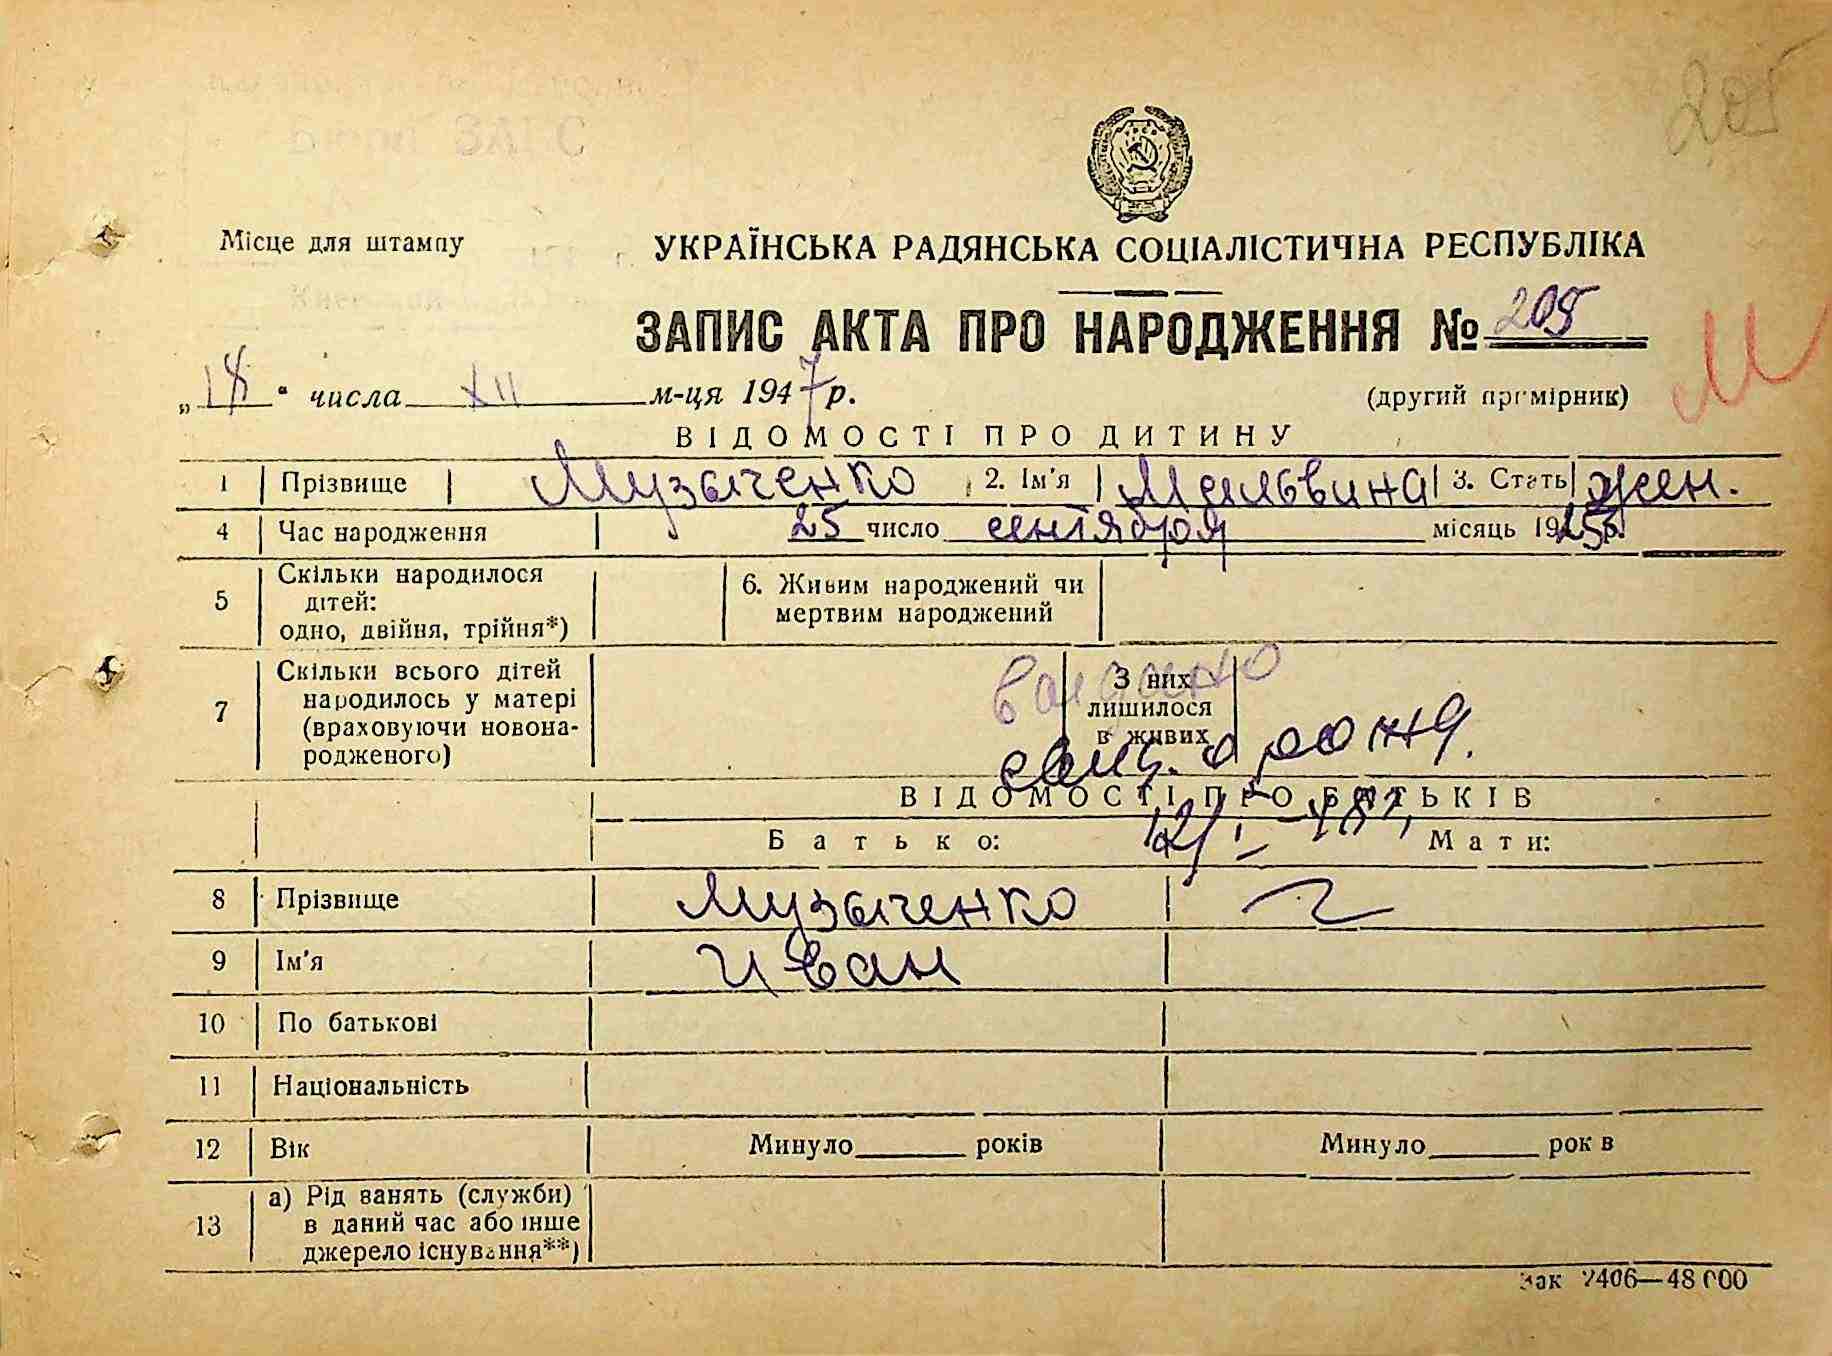 205
Місце для штампу
УКРАЇНСЬКА РАДЯНСЬКА СОЦІАЛІСТИЧНА РЕСПУБЛІКА
ЗАПИС АКТА ПРО НАРОДЖЕННЯ № 205
М
„18" числа XII м-ця 1947 р.
(другий примірник)
ВІДОМОСТІ ПРО ДИТИНУ
1 Прізвище Музыченко 2. Ім'я Мальвина 3. Стать жен.
4 Час народження 25 число сентября місяць 1925 р.
5 Скільки народилося дітей: одно, двійня, трійня*) 6. Живим народжений чи мертвим народжений
7 Скільки всього дітей народилось у матері (враховуючи новонародженого) З них лишилося в живих
выдано
свид. о рожд.
12/I-48 г.
ВІДОМОСТІ ПРО БАТЬКІВ
Батько: Мати:
8 Прізвище Музыченко
9 Ім'я Иван
10 По батькові
11 Національність
12 Вік Минуло______ років Минуло______ рок в
13 а) Рід занять (служби) в даний час або інше джерело існування**)
Зак 2406—48 000